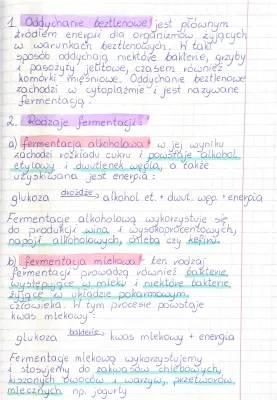 1. Oddychanie beztlenowe jest głównym
źródłem energii dla organizmów żyjących
w warunkach beztlenowych. W taki
sposób oddychają niektóre bakterie, grzyby
i pasożyty jelitowe, czasem również
komórki mięśniowe. Oddychanie beztlenowe
zachodzi w cytoplaźmie i jest nazywane
fermentacją.
2. Rodzaje fermentacji:
a) fermentacja alkoholowa w jej wyniku
zachodzi rozkładu cukru i powstaje alkohol
etylowy i dwutlenek węgla, a także
uzyskiwana jest energia:
glukoza drożdże alkohol et. + dwut. węg. + energia
Fermentacje alkoholową wykorzystuje się
do produkcji wina i wysokoprocentowych
napoji alkoholowych, chleba czy kefiru.
b) fermentacja mlekowa ten rodzaj
fermentacji prowadzą również bakterie
występujące w mleku i niektóre bakterie
żyjące w układzie pokarmowym
człowieka. W tym procesie powstaje
kwas mlekowy:
glukoza bakterie kwas mlekowy + energia
Fermentacje mlekową wykorzystujemy
i stosujemy do zakwasów chlebowych,
kiszonych owoców i warzyw, przetworów
mlecznych np. jogurty